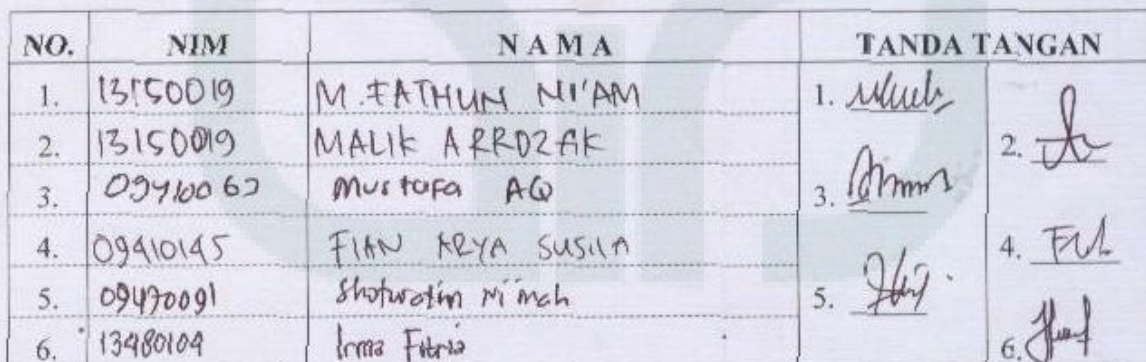 NO. NIM NAMA TANDA TANGAN
1. 13150019 M. FATHUN NI'AM 1.
2. 13150019 MALIK ARROZAK 2.
3. Mustofa AQ 3.
4. 09410145 FIAN ARYA SUSILA 4.
5. 09470091 Ni'mah 5.
6. 13480104 Irma Fitria 6.